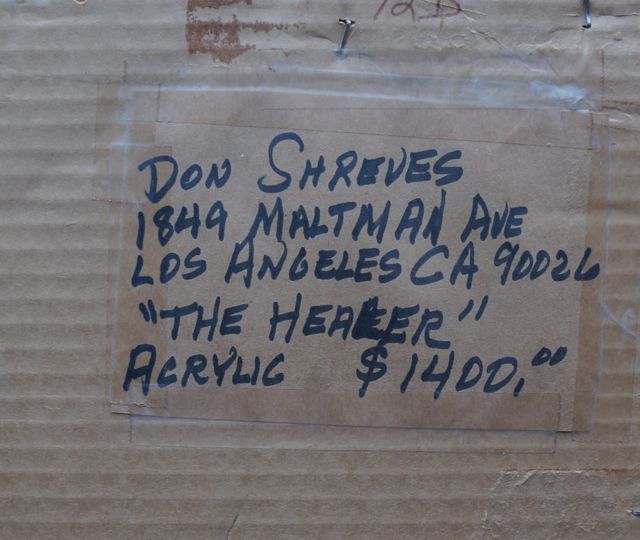 12D
DON SHREVES
1849 MALTMAN AVE
LOS ANGELES CA 90026
"THE HEALER"
ACRYLIC $1400,00